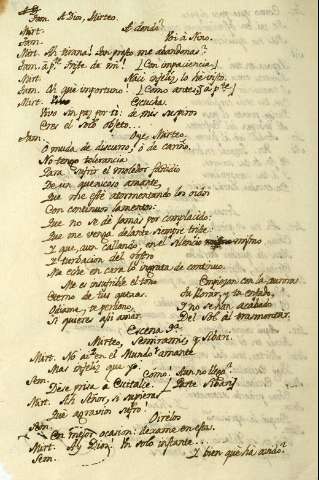 Sem. A Dios, Mirteo.
Mirt. A donde?
Sem. Voi á Nino.
Mirt. Ah tirana! tan presto me abandonas?
Sem. á p.te Triste de mi! [Con impaciencia.]
Mirt. Naci infeliz, lo he visto.
Sem. Qh que importuno! [Como antes, á p.te]
Mirt. Escucha.
Vivo sin paz por ti: de mis suspiros
Eres el solo objeto...
Sem. Oye Mirteo.
O muda de discurso, ó de cariño.
No tengo tolerancia
Para sufrir el molesto fastidio
De un quejicoso amante,
Que me esté atormentando los oidos
Con continuos lamentos:
Que no se dé jamas por complacido:
Que me venga delante siempre triste:
Y que, aun callando, en el silencio mismo
Y turbacion del rostro
Me eche en cara lo ingrata de continuo.
Me es insufrible el tono
Eterno de tus quexas.
Odiame, te perdono,
Si quieres asi amar.
Empiezan con la aurora
Su llorar, y tu enfado,
Y no se han acabado
Del Sol al trasmontar.
Escena 9.a
Mirteo, Semiramis, y Sibari.
Mirt. No ai en el Mundo amante
Mas infeliz que yo.
Sem. Como! tan no llego?
Dese prisa á Escitalce. [Parte Sibari]
Mirt. Ah Señor, si supieras
Que agravios sufro!
Sem. Direlos
Con mejor ocasion: dexame en esta.
Mirt. Ay Dios! Un solo instante...
Sem. I bien que ha avido?